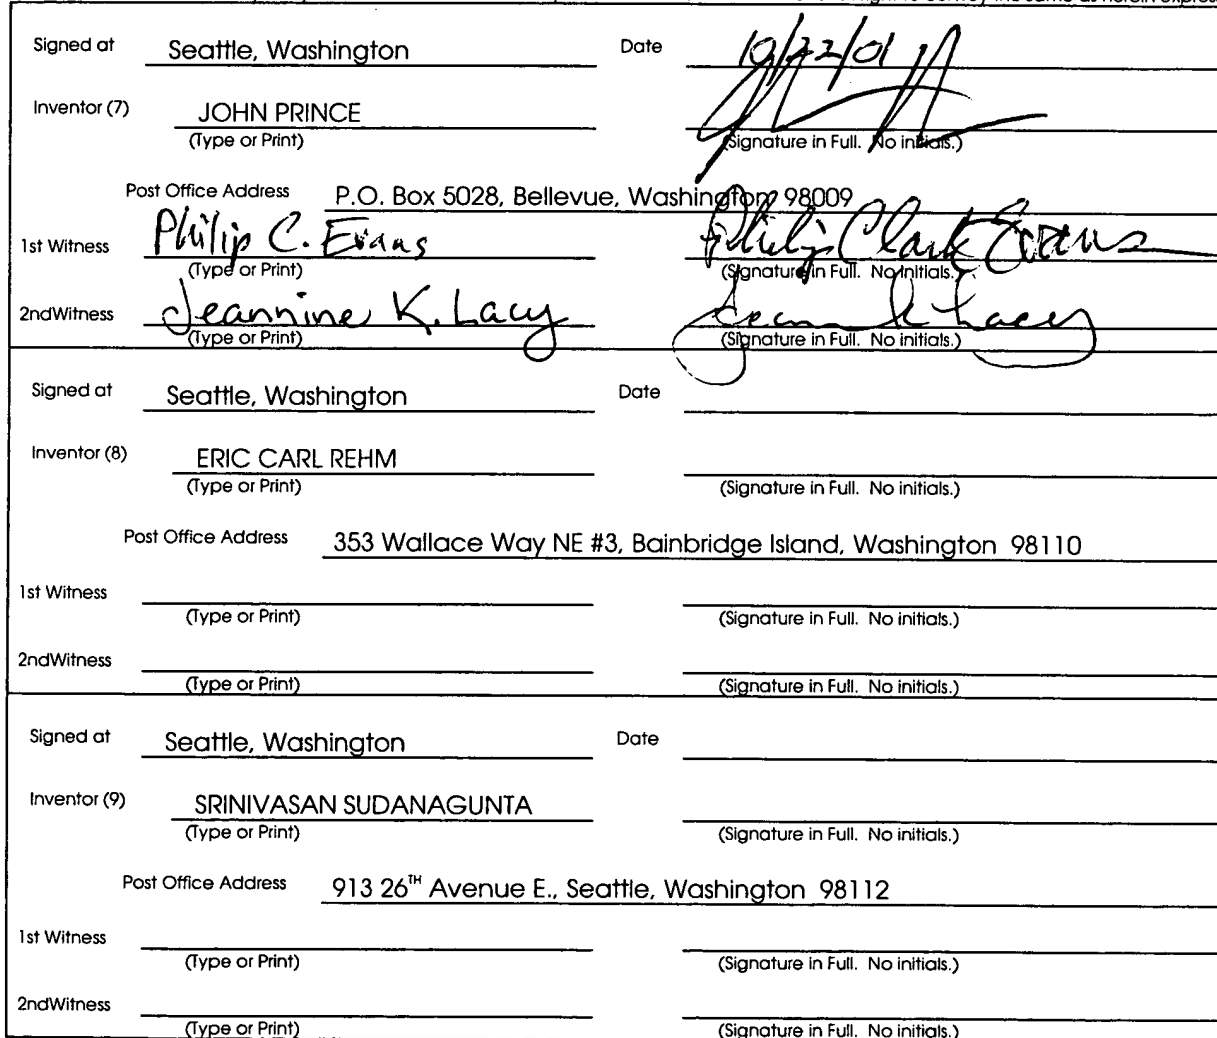 convey the same as herein express
Signed at Seattle, Washington Date 10/22/01
Inventor (7) JOHN PRINCE
(Type or Print) (Signature in Full. No initials.)
Post Office Address P.O. Box 5028, Bellevue, Washington 98009
1st Witness Philip C. Evans Philip Clark Evans
(Type or Print) (Signature in Full. No Initials.)
2ndWitness Jeannine K. Lacy Jeannine K Lacy
(Type or Print) (Signature in Full. No initials.)
Signed at Seattle, Washington Date
Inventor (8) ERIC CARL REHM
(Type or Print) (Signature in Full. No initials.)
Post Office Address 353 Wallace Way NE #3, Bainbridge Island, Washington 98110
1st Witness
(Type or Print) (Signature in Full. No initials.)
2ndWitness
(Type or Print) (Signature in Full. No initials.)
Signed at Seattle, Washington Date
Inventor (9) SRINIVASAN SUDANAGUNTA
(Type or Print) (Signature in Full. No initials.)
Post Office Address 913 26TH Avenue E., Seattle, Washington 98112
1st Witness
(Type or Print) (Signature in Full. No initials.)
2ndWitness
(Type or Print) (Signature in Full. No initials.)